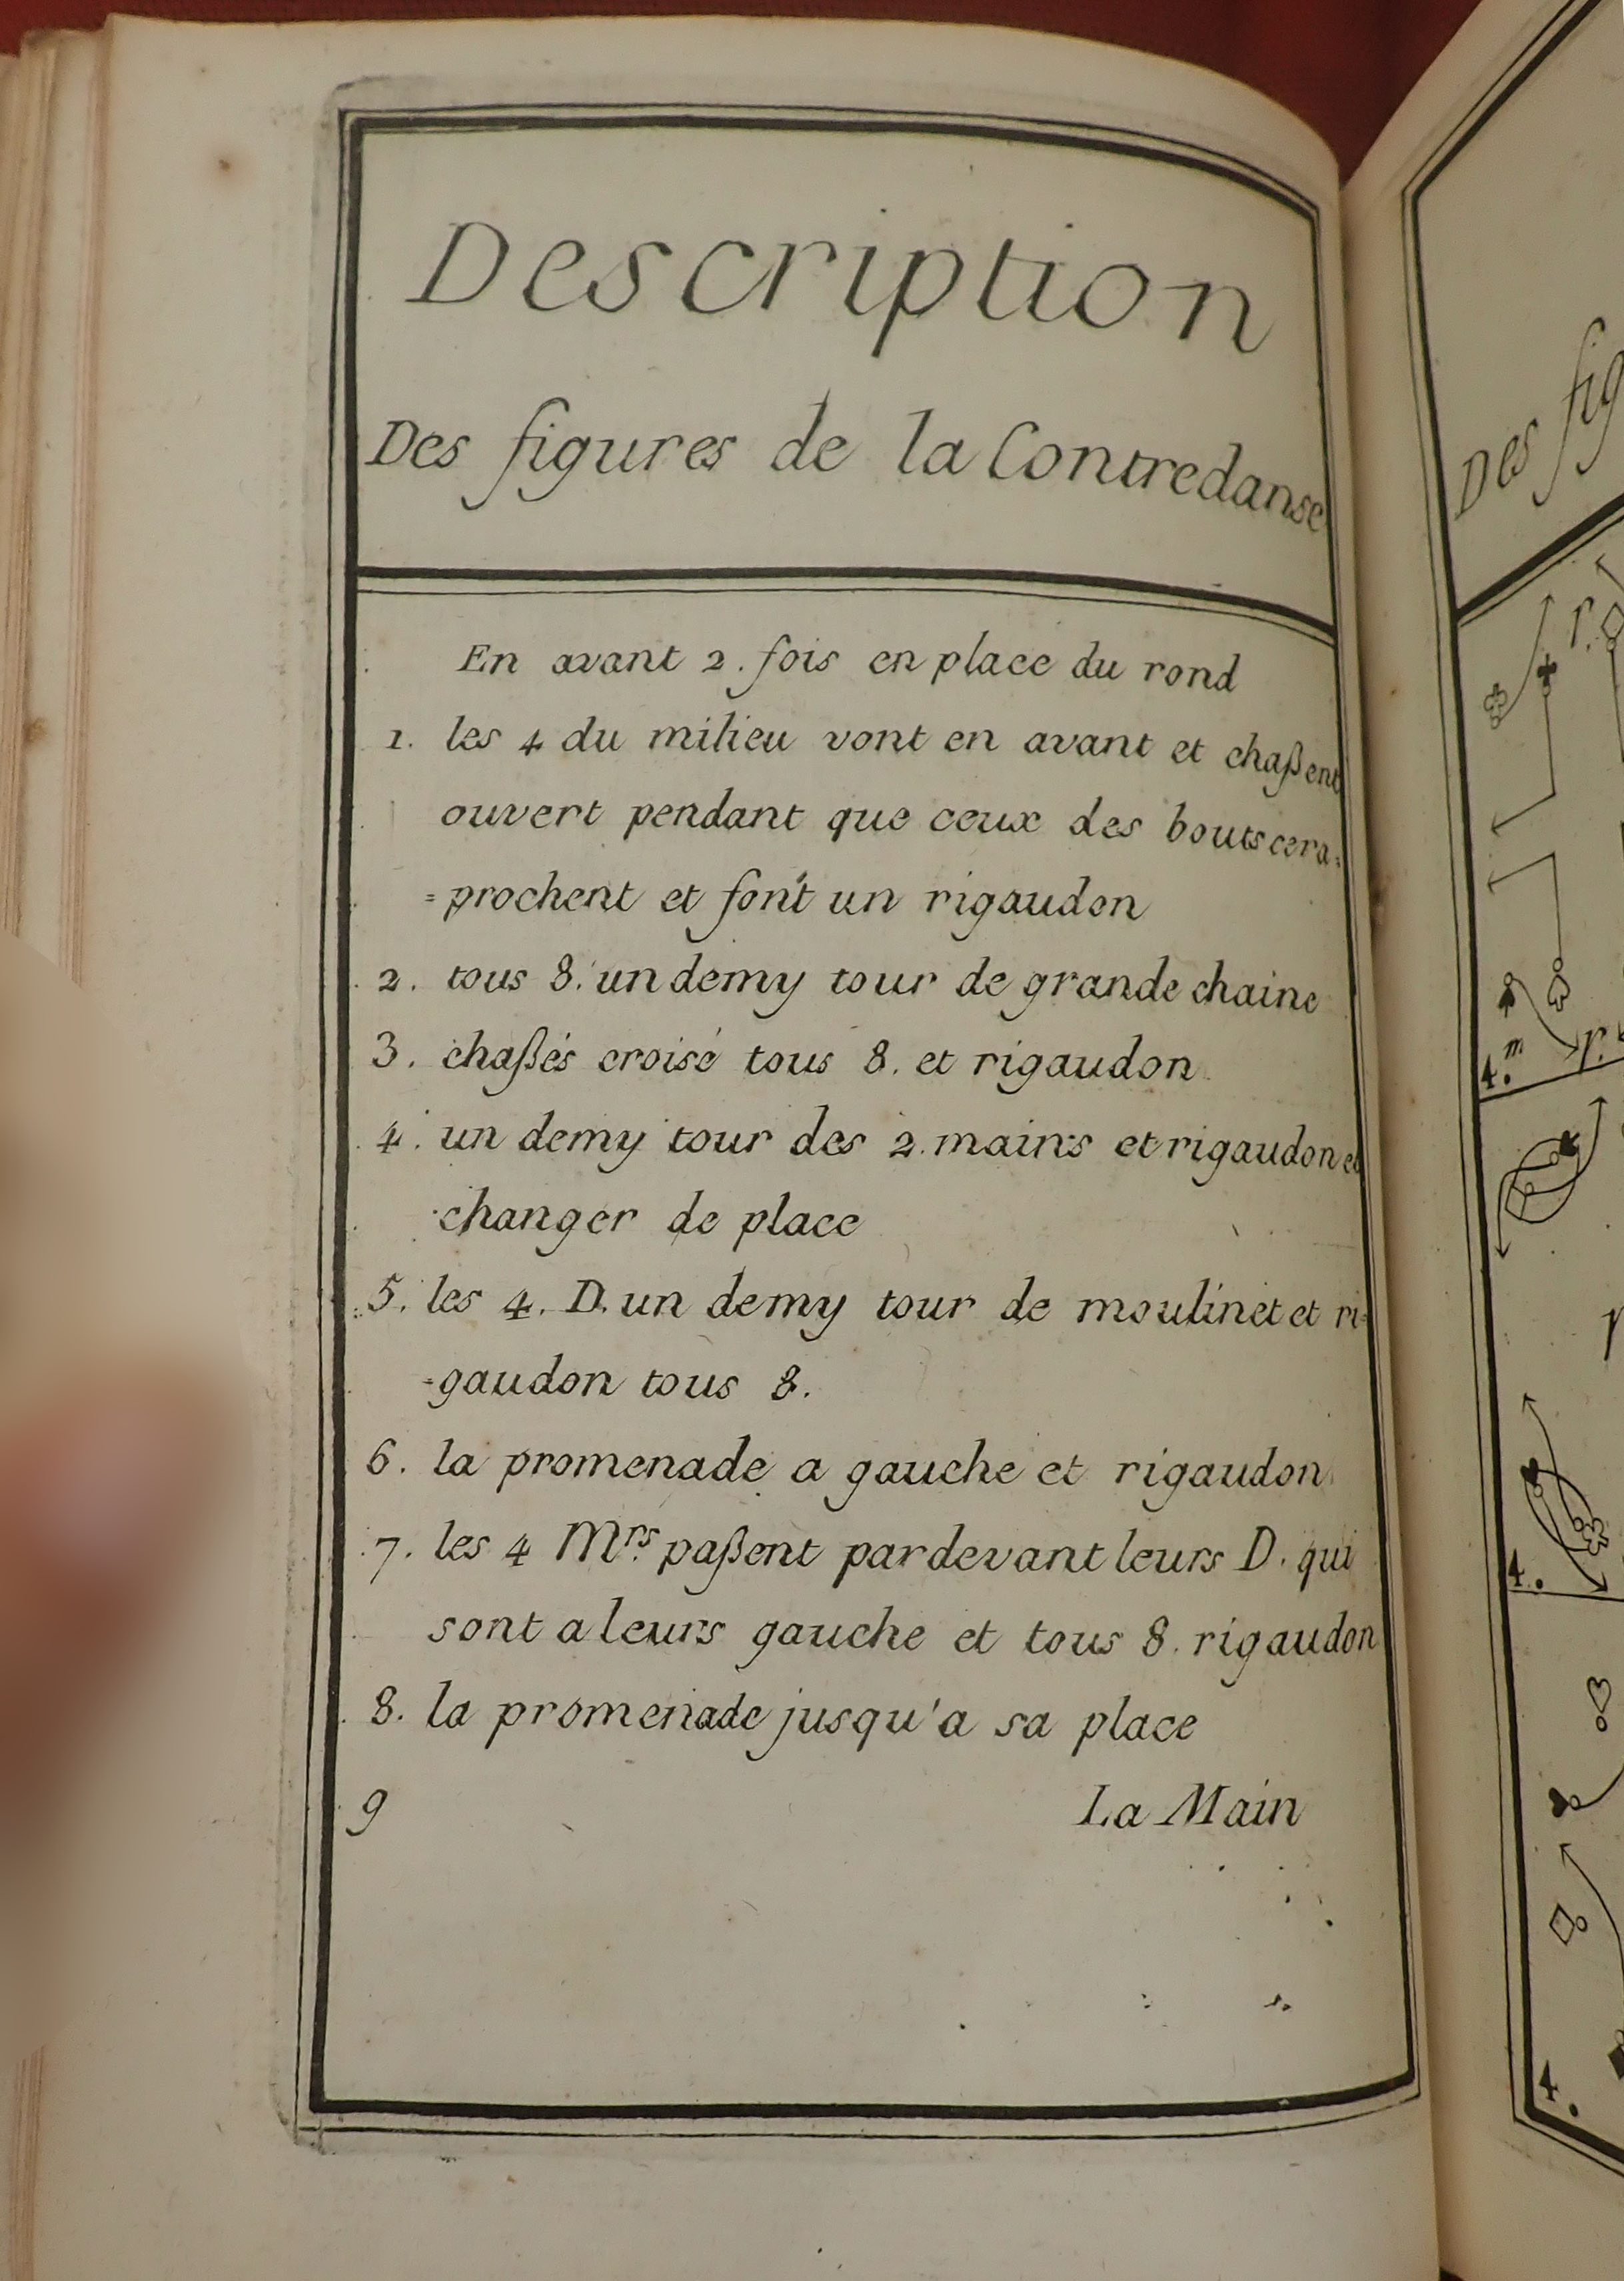 Description
Des figures de la Contredanse
En avant 2. fois en place du rond
1. les 4 du milieu vont en avant et chaßent
ouvert pendant que ceux des bouts cera=
=prochent et font un rigaudon
2. tous 8. un demy tour de grande chaine
3. chaßés croisé tous 8. et rigaudon
4. un demy tour des 2. mains et rigaudon et
changer de place
5. les 4. D. un demy tour de moulinet et ri=
=gaudon tous 8.
6. la promenade a gauche et rigaudon
7. les 4 Mrs. paßent par devant leurs D. qui
sont a leurs gauche et tous 8. rigaudon
8. la promenade jusqu'a sa place
9 La Main
Des fig
r.
m
4.
r.
4.
4.